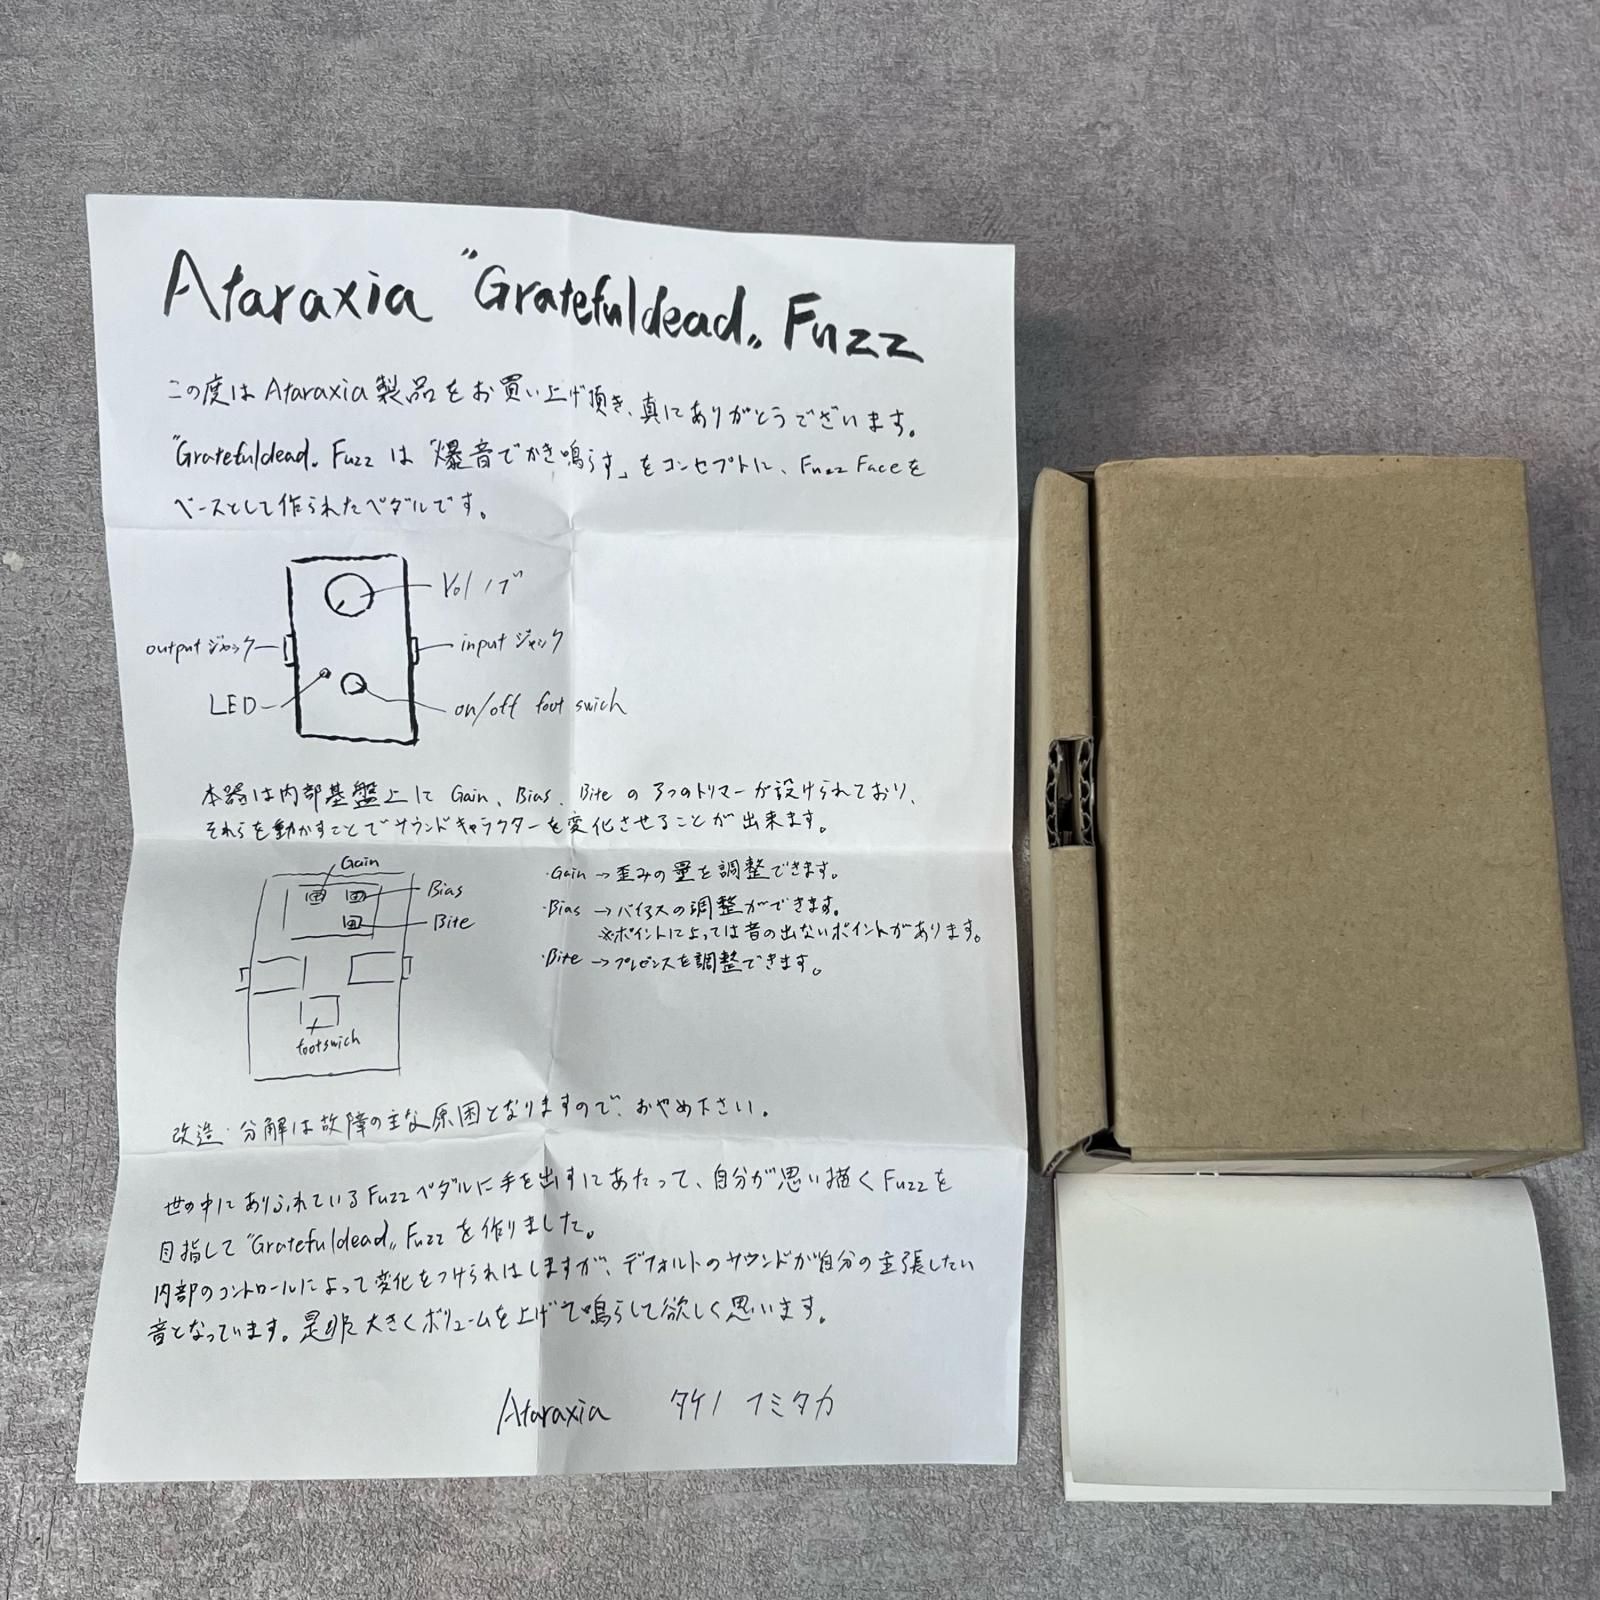 Ataraxia "Gratefuldead„ Fuzz
この度は Ataraxia 製品をお買い上げ頂き、真にありがとうでございます。
"Gratefuldead„ Fuzz は「爆音でかき鳴らす」をコンセプトに、Fuzz Faceを
ベースとして作られたペダルです。
Vol ノブ
output ジャック
input ジャック
LED
on/off foot swich
本器は内部基盤上にて Gain、Bias、Bite の 3つのトリマーが設けられており、
それらを動かすことでサウンドキャラクターを変化させることが出来ます。
Gain
Bias
Bite
footswich
・Gain → 歪みの量を調整できます。
・Bias → バイアスの調整ができます。
※ポイントによっては音の出ないポイントがあります。
・Bite → プレゼンスを調整できます。
改造・分解は故障の主な原因となりますので、おやめ下さい。
世の中にありふれているFuzzペダルに手を出すにあたって、自分が思い描くFuzzを
目指して"Gratefuldead„ Fuzzを作りました。
内部のコントロールによって変化をつけられはしますが、デフォルトのサウンドが自分の主張したい
音となっています。是非大きくボリュームを上げて鳴らして欲しく思います。
Ataraxia タケノ フミタカ